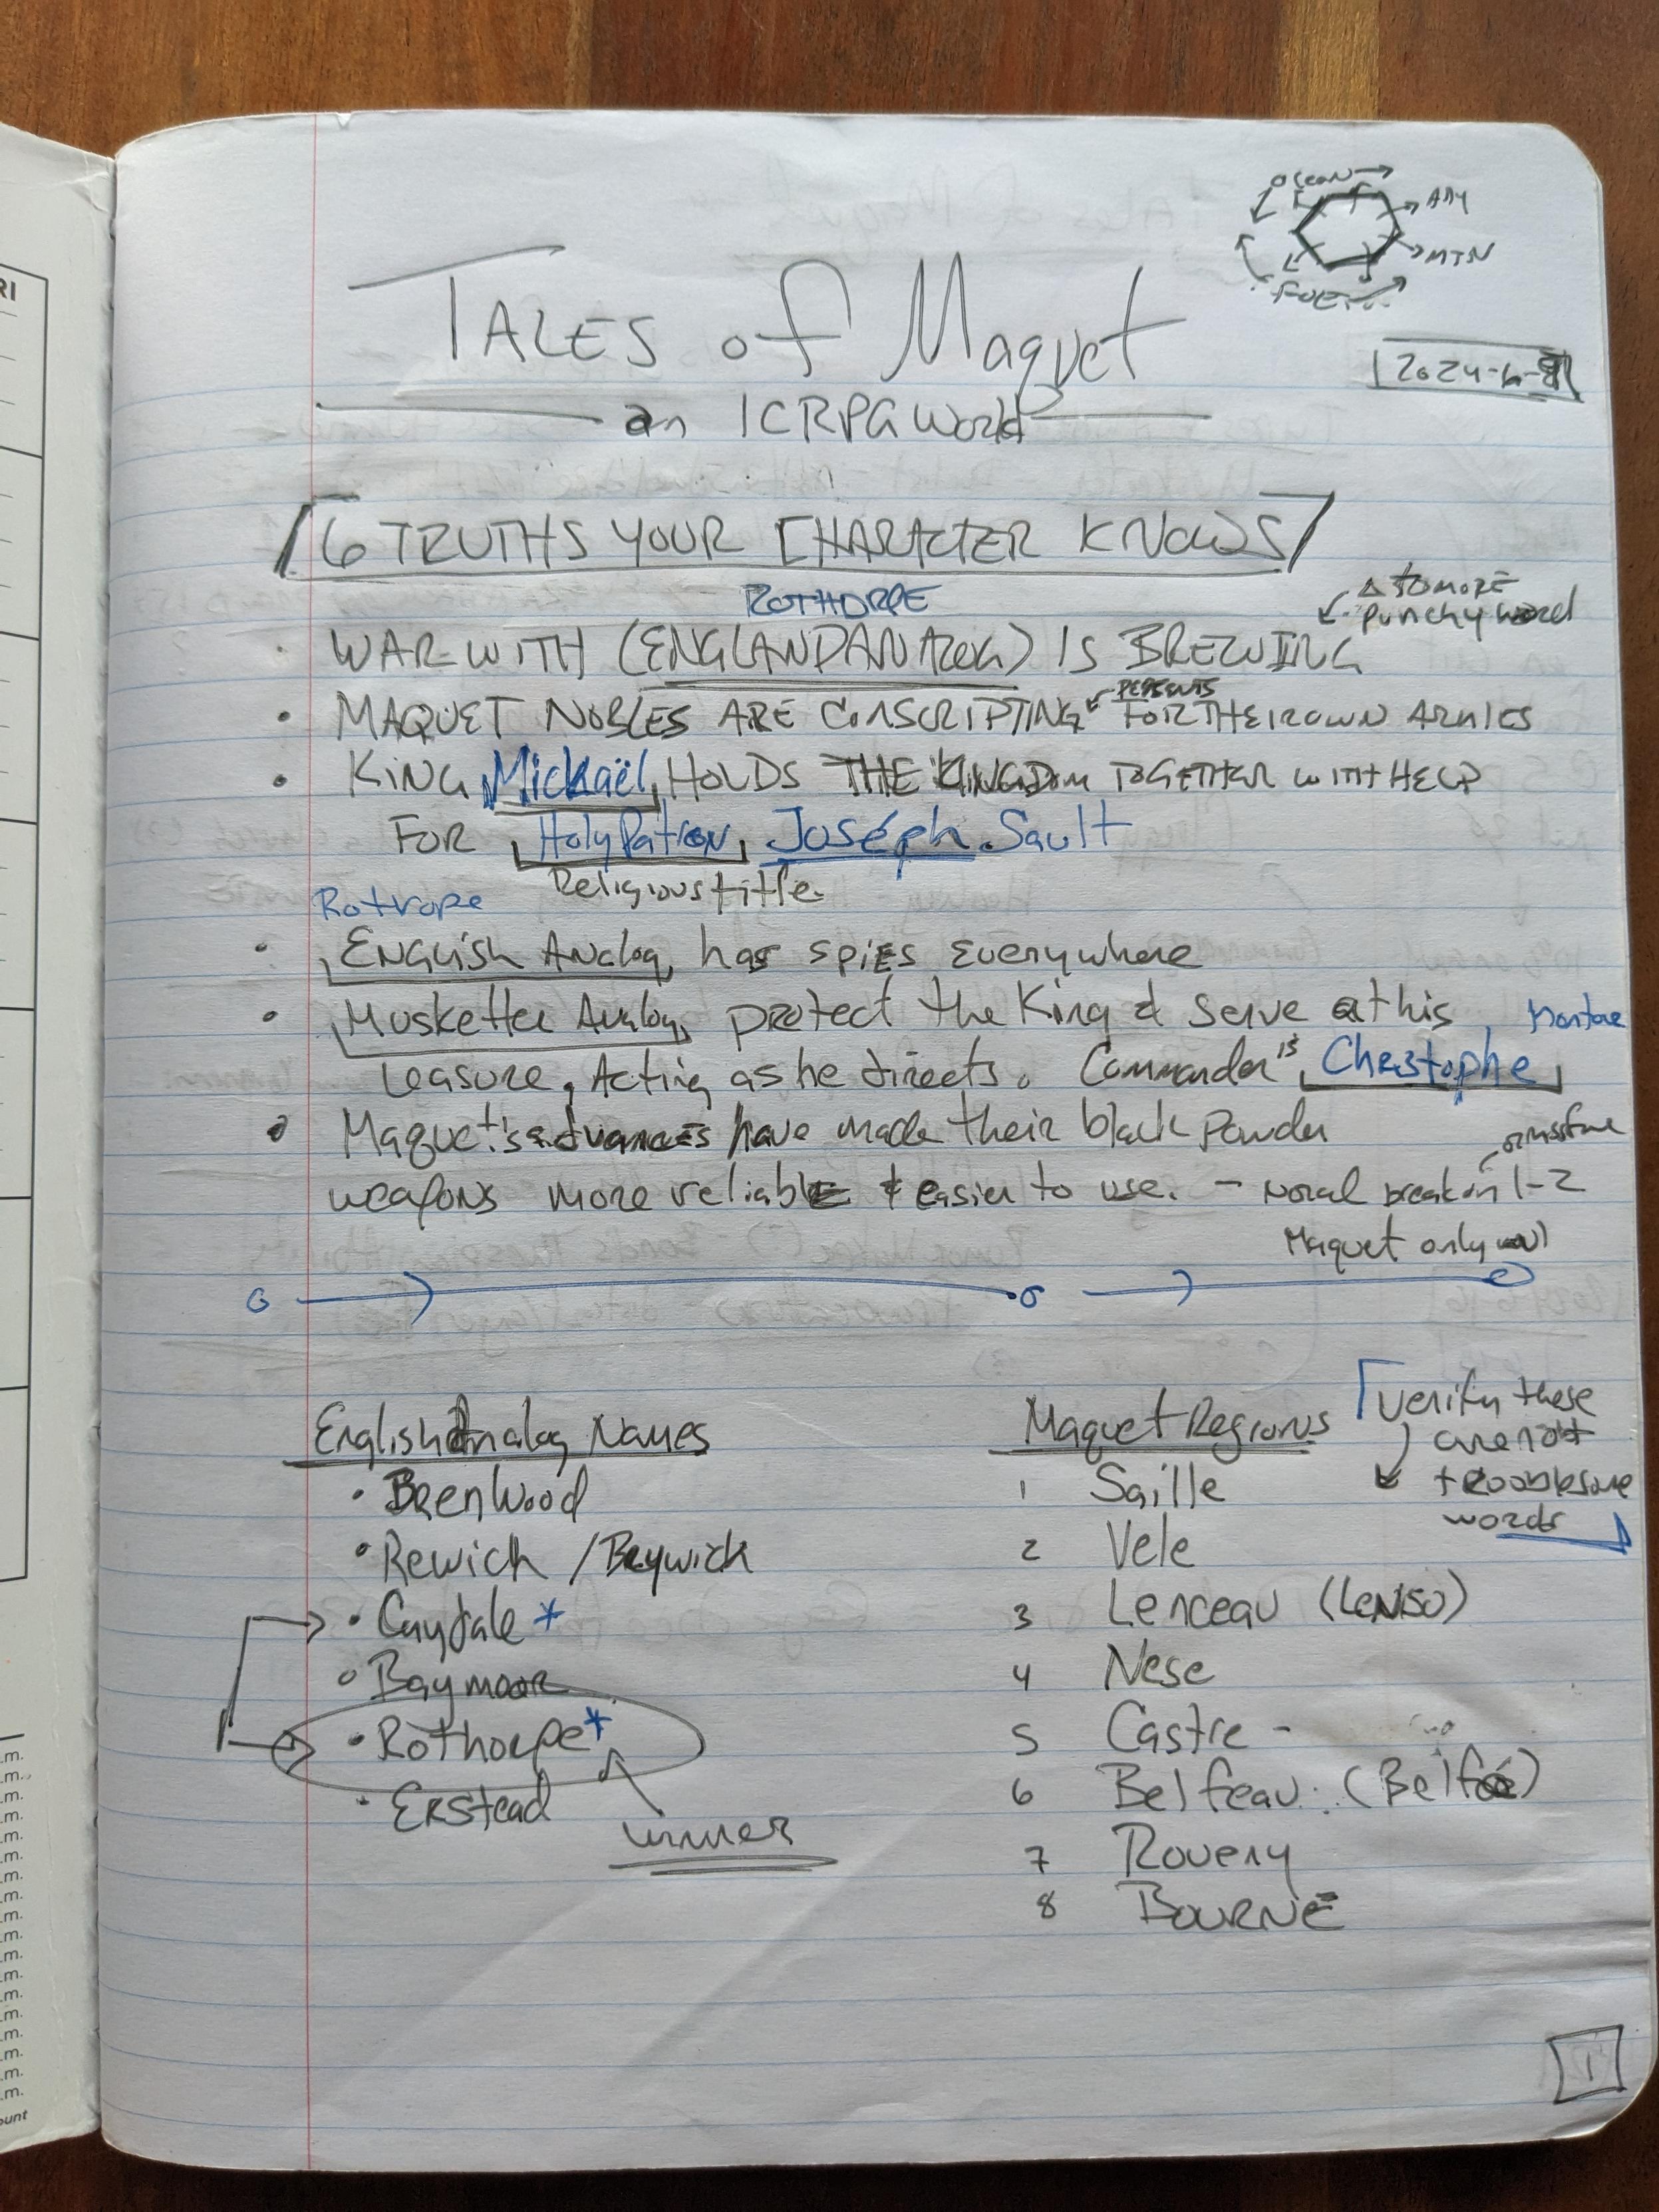 Ocean
Any
MTN
2024-6-
TALES of Maquet
an ICRPG World
6 TRUTHS YOUR CHARACTER KNOWS
ROTHORPE
Δ to more
punchy word
• WAR WITH (ENGLAND ANALOG) IS BREWING
• MAQUET NOBLES ARE CONSCRIPTING FOR THEIR OWN ARMIES
• KING Mickaël HOLDS THE KINGDOM TOGETHER WITH HELP
FOR Holy Patron, Joséph Sault
Religious title
Rotrope
• English Analog, has spies everywhere
• Muskettee Analog, protect the King & serve at his
Leasure, Acting as he directs. Commander is Chrestophe
• Maquet's advances have made their black powder
weapons more reliable & easier to use. - Noral break on 1-2
Maquet only on 1
English Analog Names
• Brenwood
• Rewich / Brywich
• Caydale *
• Baymoor
• Rothorpe *
• Erstead
winner
Maquet Regions
verify these
are not
troublesome
words
1 Saille
2 Vele
3 Lenceau (LENSO)
4 Nese
5 Castre -
6 Belfeau (Belfo)
7 Roveny
8 BOURNE
1
a.m.
ount
RI